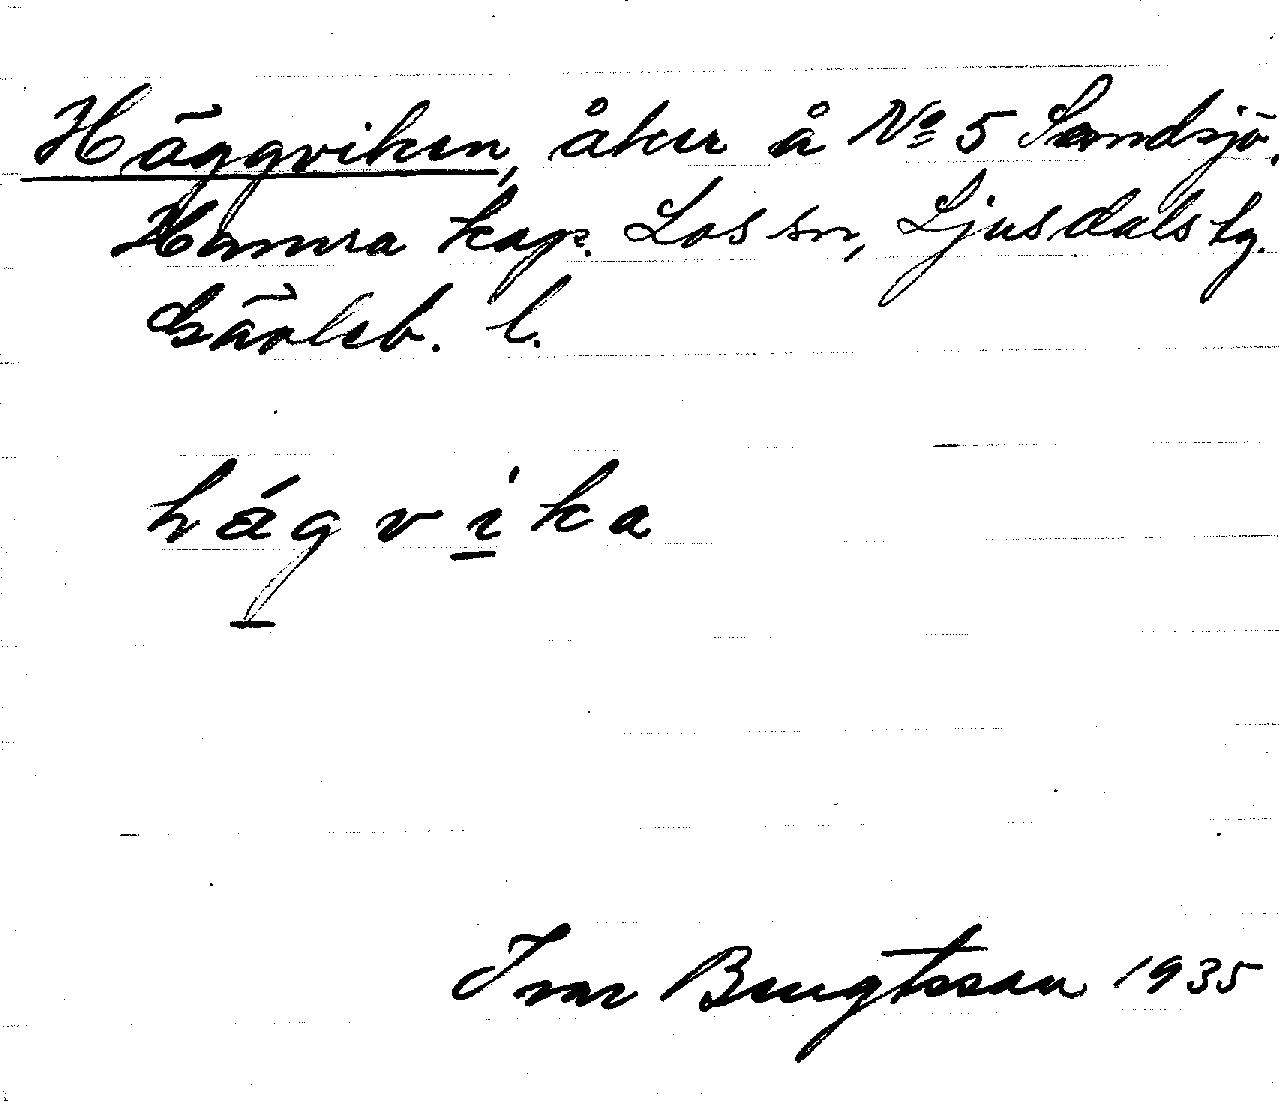 Häggviken, åker å No 5 Sandsjö,
Hamra kap. Los sn, Ljusdals tg.
Gävleb. l.
hágvika
Ivar Bengtsson 1935